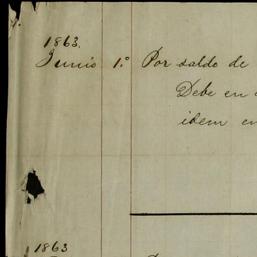 1863.
Junio 1.º Por saldo de
Debe en
idem en
1863